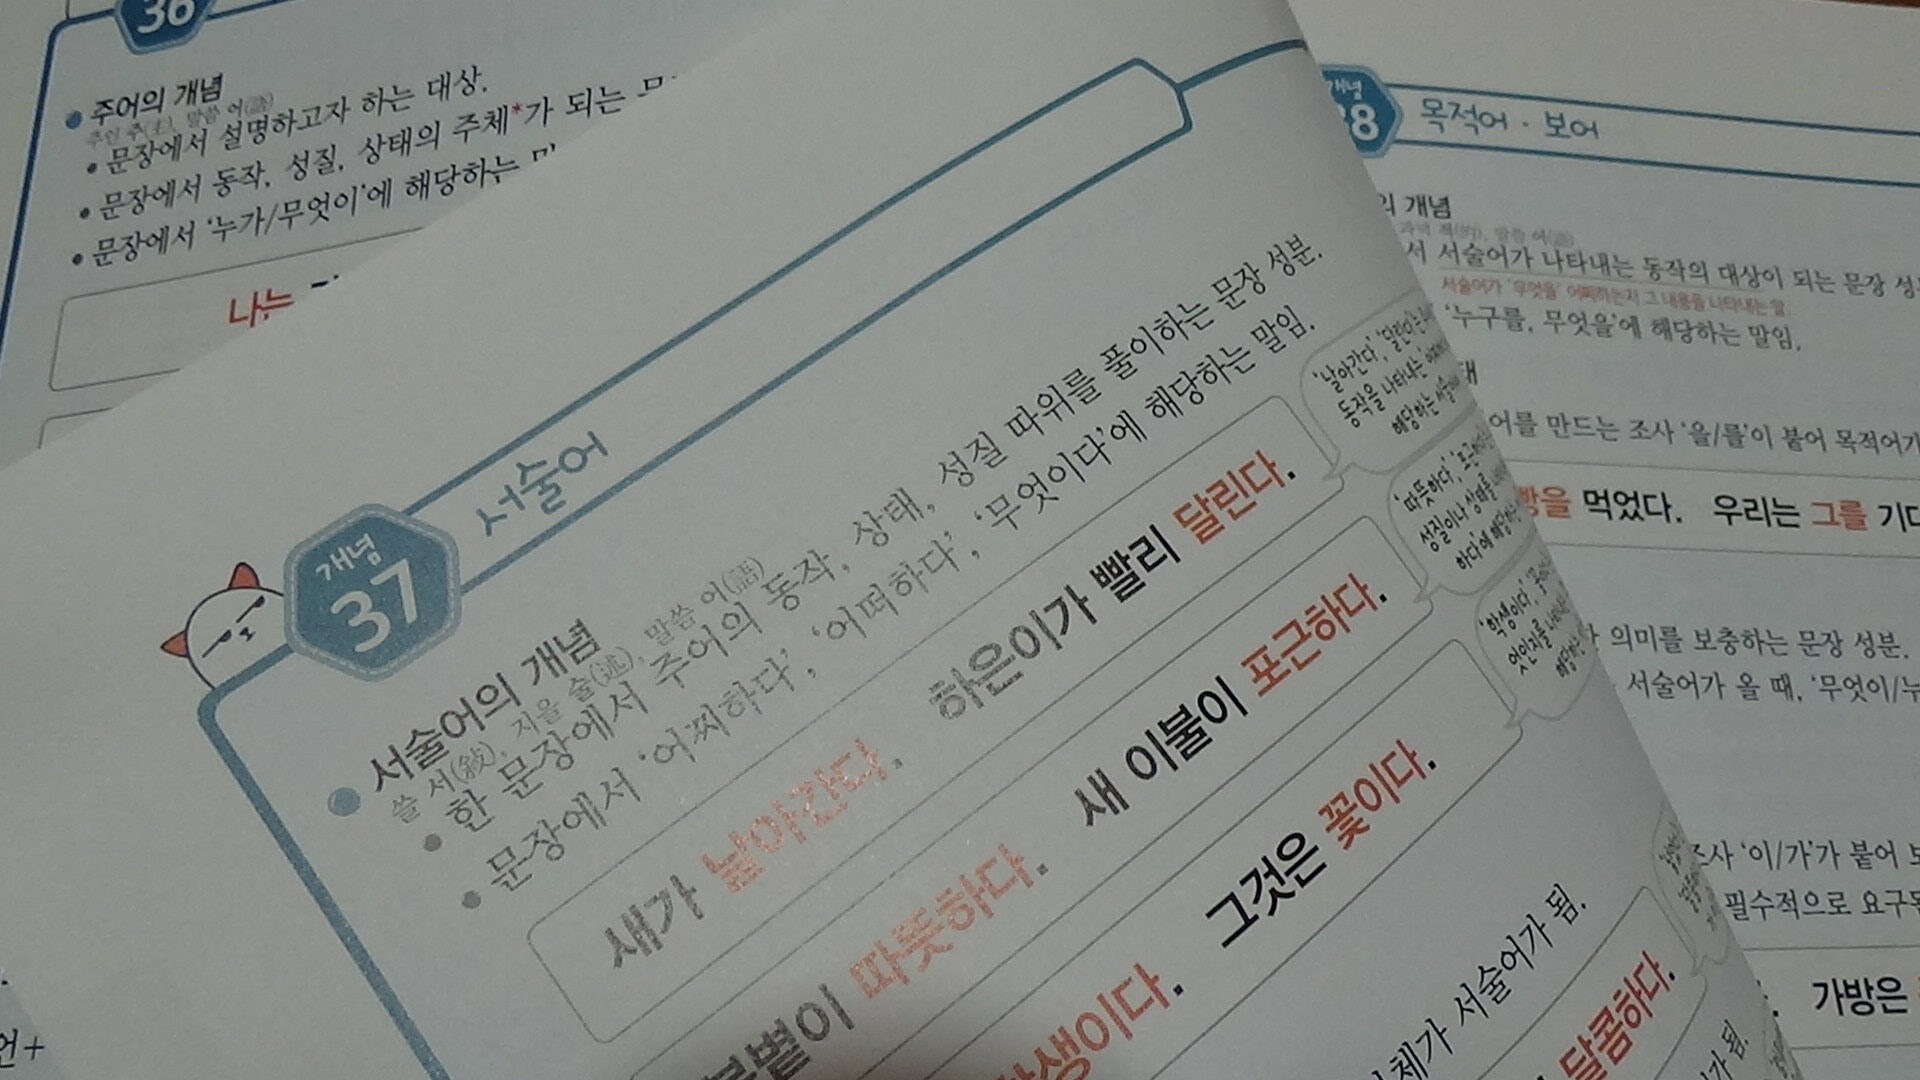 36
주어의 개념
주인 주(主), 말씀 어(語)
문장에서 설명하고자 하는 대상.
문장에서 동작, 성질, 상태의 주체*가 되는
문장에서 ‘누가/무엇이’에 해당하는
나는
개념
37
서술어
서술어의 개념
쓸 서(敍), 지을 술(述), 말씀 어(語)
한 문장에서 주어의 동작, 상태, 성질 따위를 풀이하는 문장 성분.
문장에서 ‘어찌하다’, ‘어떠하다’, ‘무엇이다’에 해당하는 말임.
새가 날아간다. 하은이가 빨리 달린다.
‘날아간다’, ‘달린다’는
동작을 나타내는
해당하는
따뜻하다. 새 이불이 포근하다.
‘따뜻하다’,
성질이나 상태를
하다’에
그것은 꽃이다.
‘학생이다’,
엇인지를
해당하는
서술어가 됨.
달콤하다.
가 됨.
언+
개념
38
목적어 · 보어
의 개념
과녁 적(的), 말씀 어(語)
서 서술어가 나타내는 동작의 대상이 되는 문장
서술어가 ‘무엇을’ 어찌하는지 그 내용을 나타내는 말
‘누구를, 무엇을’에 해당하는 말임.
어를 만드는 조사 ‘을/를’이 붙어 목적어가
먹었다. 우리는 그를
의미를 보충하는 문장 성분.
서술어가 올 때, ‘무엇이/
조사 ‘이/가’가 붙어
필수적으로
가방은